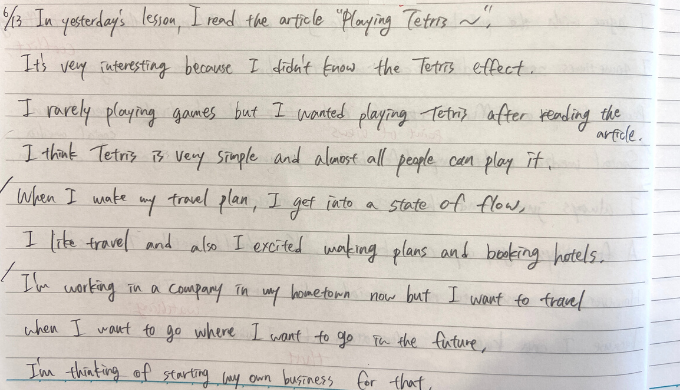 6/13 In yesterday's lesson, I read the article "Playing Tetris ~".
It's very interesting because I didn't know the Tetris effect.
I rarely playing games but I wanted playing Tetris after reading the
article.
I think Tetris is very simple and almost all people can play it.
When I make my travel plan, I get into a state of flow.
I like travel and also I excited making plans and booking hotels.
I'm working in a company in my hometown now but I want to travel
when I want to go where I want to go in the future.
I'm thinking of starting my own business for that.